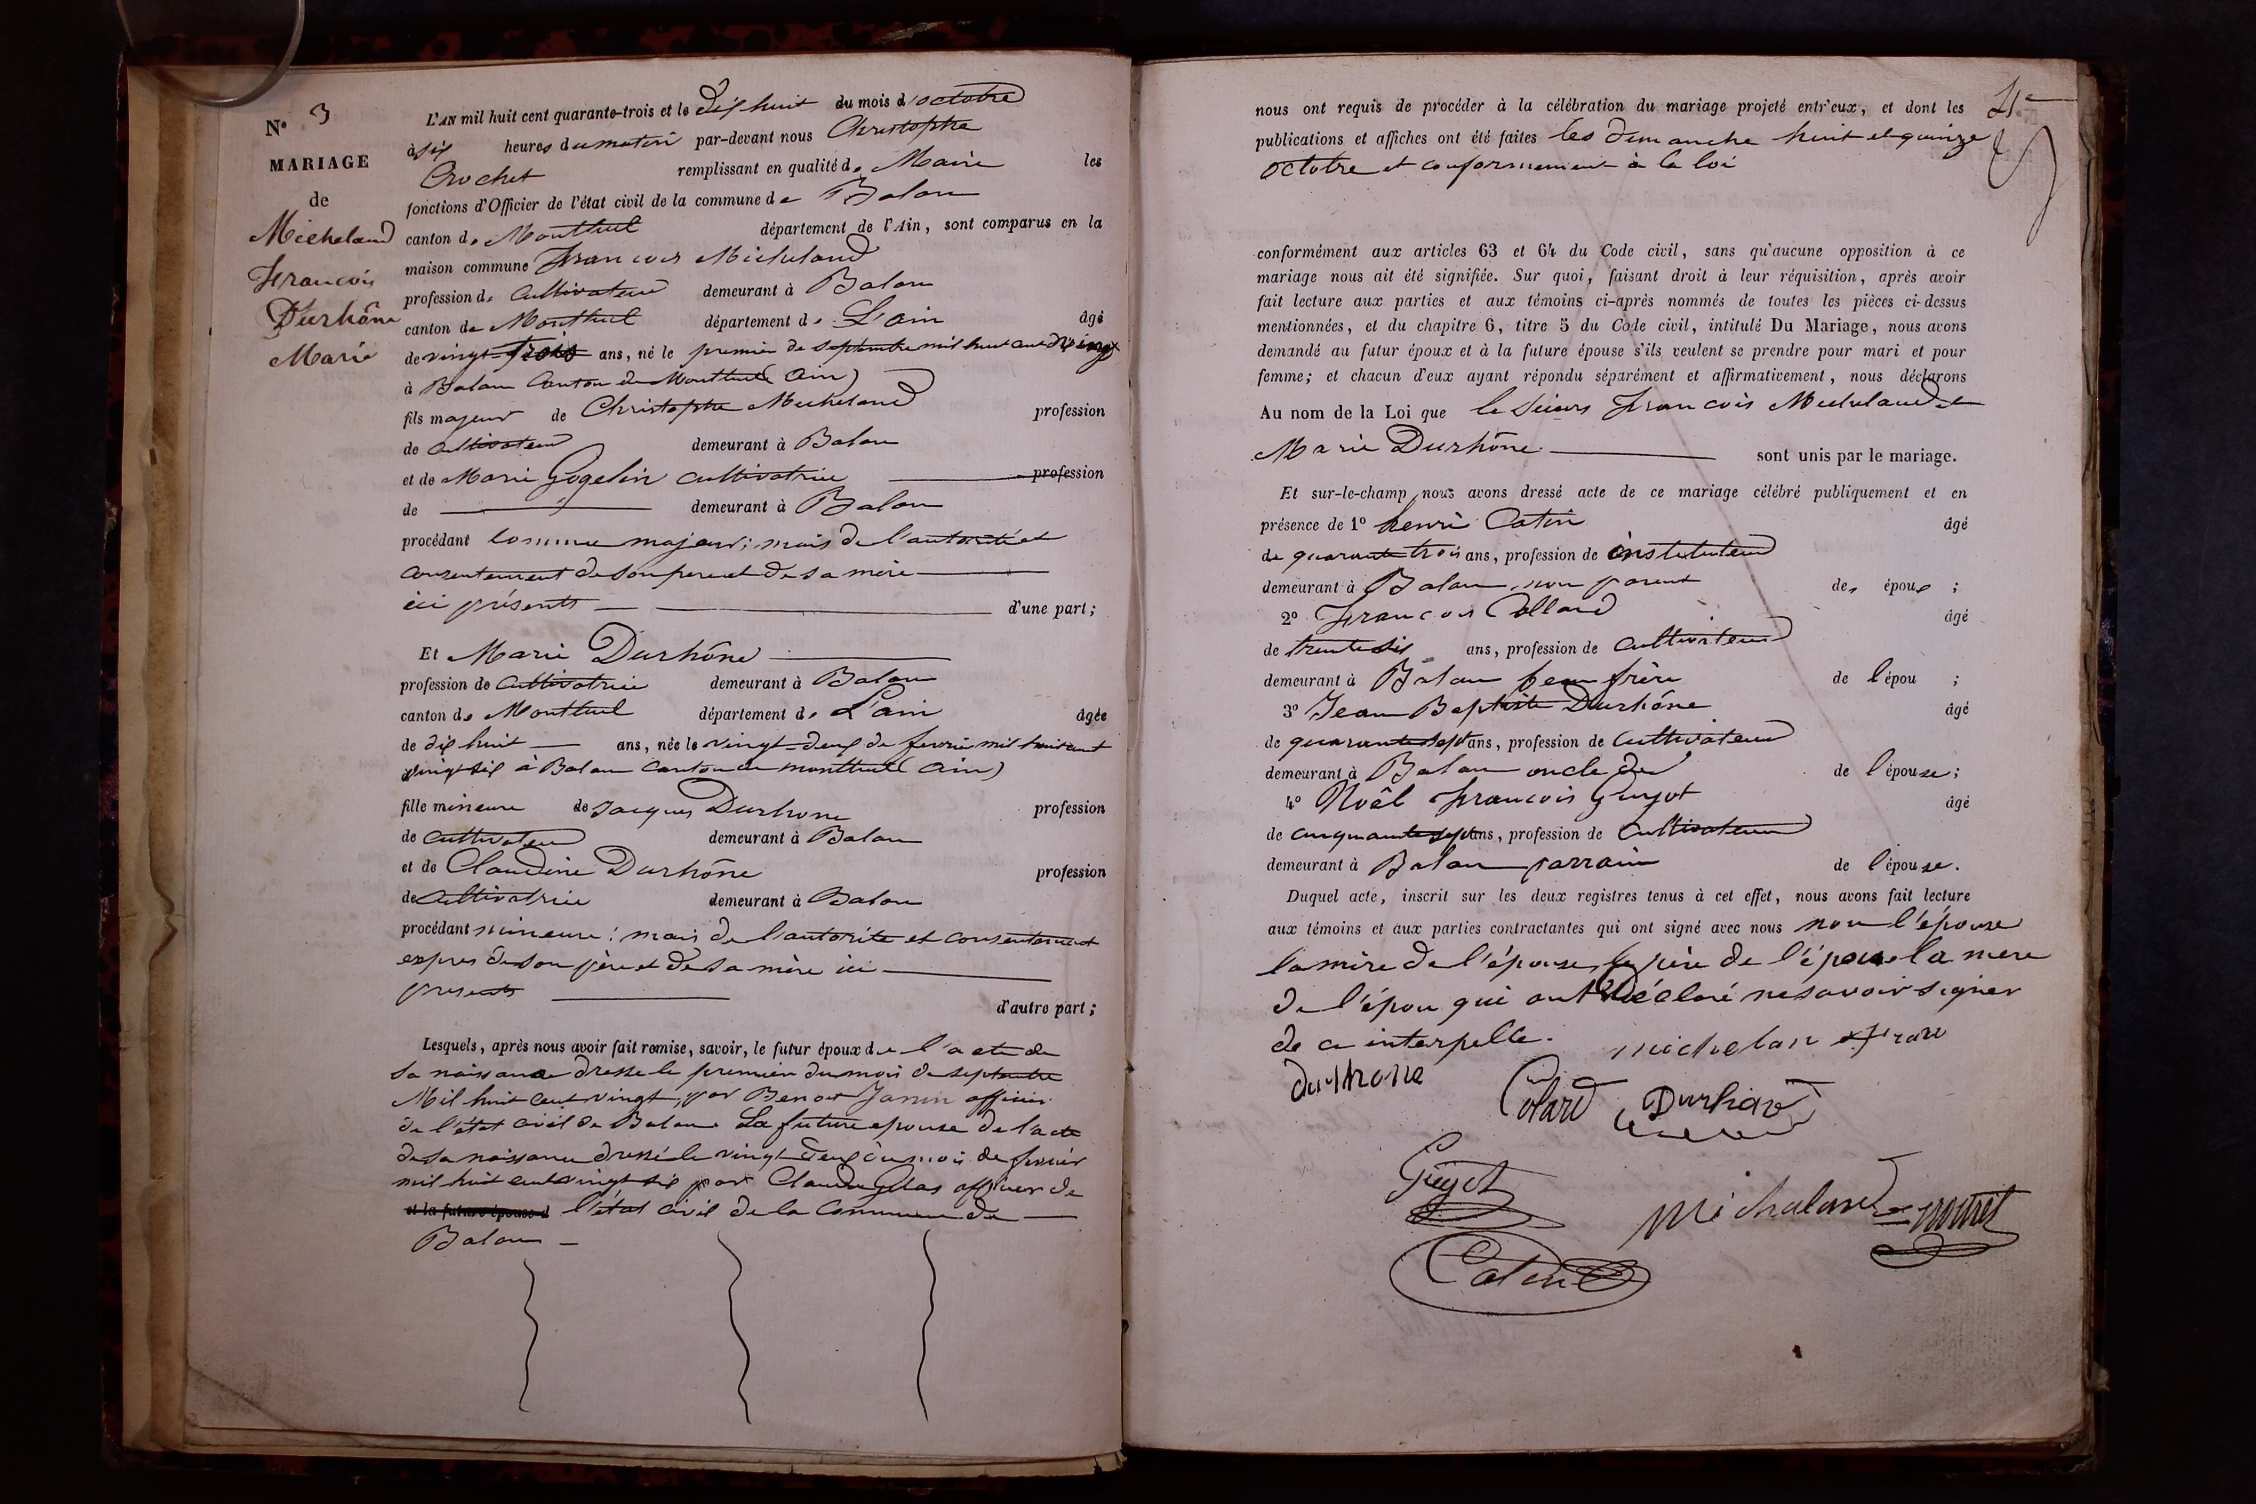 N.o 3
MARIAGE
de
Micheland
François
Durhône
Marie
L'AN mil huit cent quarante-trois et le dix huit du mois d'octobre
à six heures du matin par-devant nous Christophe
Crochet remplissant en qualité de Maire les
fonctions d'Officier de l'état civil de la commune de Balan
canton de Montluel département de l'Ain, sont comparus en la
maison commune François Micheland
profession de cultivateur demeurant à Balan
canton de Montluel département de L'ain âgé
de vingt trois ans, né le premier de septembre mil huit cent vingt
à Balan Canton de Montluel (Ain)
fils majeur de Christophe Micheland profession
de cultivateur demeurant à Balan
et de Marie Gogelin cultivatrice profession
de demeurant à Balan
procédant comme majeur; mais de l'autorité et
consentement de son pere et de sa mère
ici présents d'une part;
Et Marie Durhône
profession de cultivatrice demeurant à Balan
canton de Montluel département de L'ain âgée
de dix huit ans, née le vingt-deux de fevrier mil huit cent
vingt six à Balan Canton de montluel (Ain)
fille mineure de Jacques Durhone profession
de cultivateur demeurant à Balan
et de Claudine Durhône profession
de cultivatrice demeurant à Balan
procédant mineure: mais de l'autorite et consentement
expres de son père et de sa mère ici
presents d'autre part;
Lesquels, après nous avoir fait remise, savoir, le futur époux de l'acte de
sa naissance dresse le premier du mois de septembre
Mil huit cent vingt, par Benoit Janin officier
de l'état civil de Balan. La future epouse de l'acte
de sa naissance dressé le vingt deux du mois de fevrier
mil huit cent vingt six par Claude Gelas officier de
et la future épouse d l'état civil de la Commune de
Balan
nous ont requis de procéder à la célébration du mariage projeté entr'eux, et dont les
publications et affiches ont été faites les dimanche huit et quinze
octobre et conformement à la loi
conformément aux articles 63 et 64 du Code civil, sans qu'aucune opposition à ce
mariage nous ait été signifiée. Sur quoi, faisant droit à leur réquisition, après avoir
fait lecture aux parties et aux témoins ci-après nommés de toutes les pièces ci-dessus
mentionnées, et du chapitre 6, titre 5 du Code civil, intitulé Du Mariage, nous avons
demandé au futur époux et à la future épouse s'ils veulent se prendre pour mari et pour
femme; et chacun d'eux ayant répondu séparément et affirmativement, nous déclarons
Au nom de la Loi que le Sieurs François Micheland et
Marie Durhône sont unis par le mariage.
Et sur-le-champ nous avons dressé acte de ce mariage célébré publiquement et en
présence de 1º henri Catin âgé
de quarante trois ans, profession de instituteur
demeurant à Balan, non parent des époux ;
2º François Collard âgé
de trente six ans, profession de cultivateur
demeurant à Balan beau frère de l'épou ;
3º Jean Baptiste Durhône âgé
de quarante sept ans, profession de cultivateur
demeurant à Balan oncle de l'épouse;
4º Noêl François Guyot âgé
de cinquante sept ans, profession de cultivateur
demeurant à Balan parrain de l'épouse.
Duquel acte, inscrit sur les deux registres tenus à cet effet, nous avons fait lecture
aux témoins et aux parties contractantes qui ont signé avec nous non l'épouse
la mère de l'épouse, le père de l'épouse la mere
de l'épou qui ont déclaré ne savoir signer
de ce interpelle.
michelan fran
durhone
Colard
Durhone
Guyot
Michaland
Catin